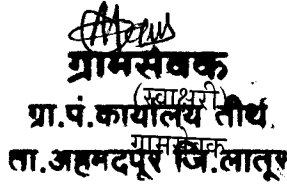 ग्रामसेवक
(स्वाक्षरी)
ग्रा.पं.कार्यालय तीर्थ
ग्रामसेवक
ता.अहमदपूर जि.लातूर